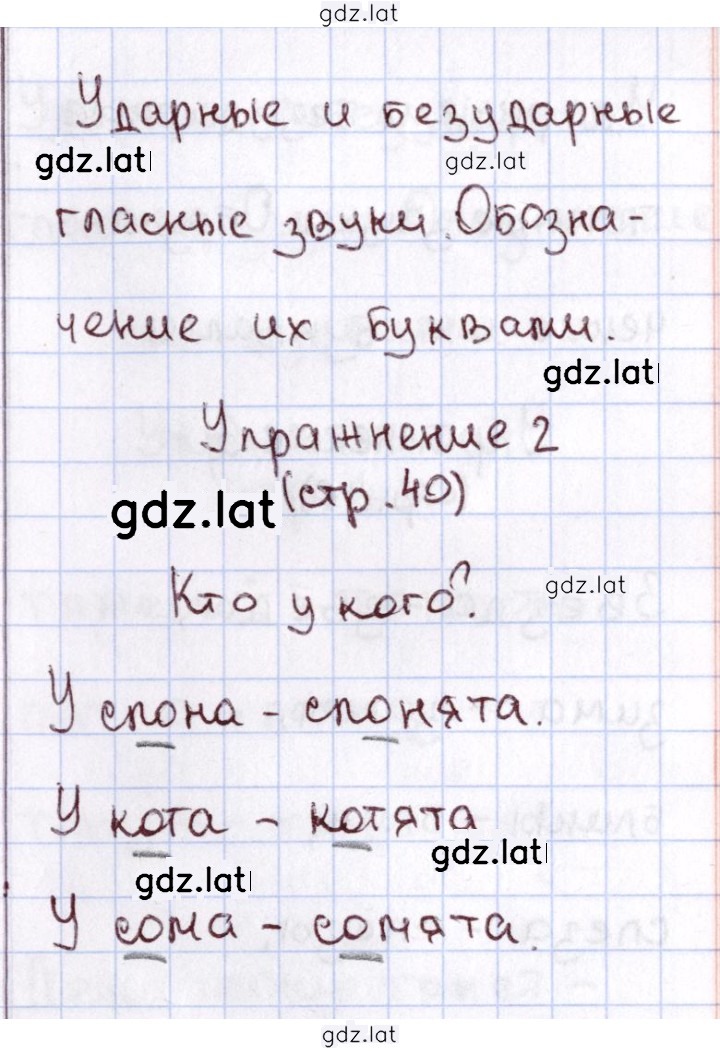 gdz.lat
Ударные и безударные
gdz.lat gdz.lat
гласные звуки. Обозна-
чение их буквами.
gdz.lat
Упражнение 2
gdz.lat (стр. 40)
Кто у кого? gdz.lat
У слона - слонята.
У кота - котята
gdz.lat gdz.lat
У сома - сомята.
gdz.lat